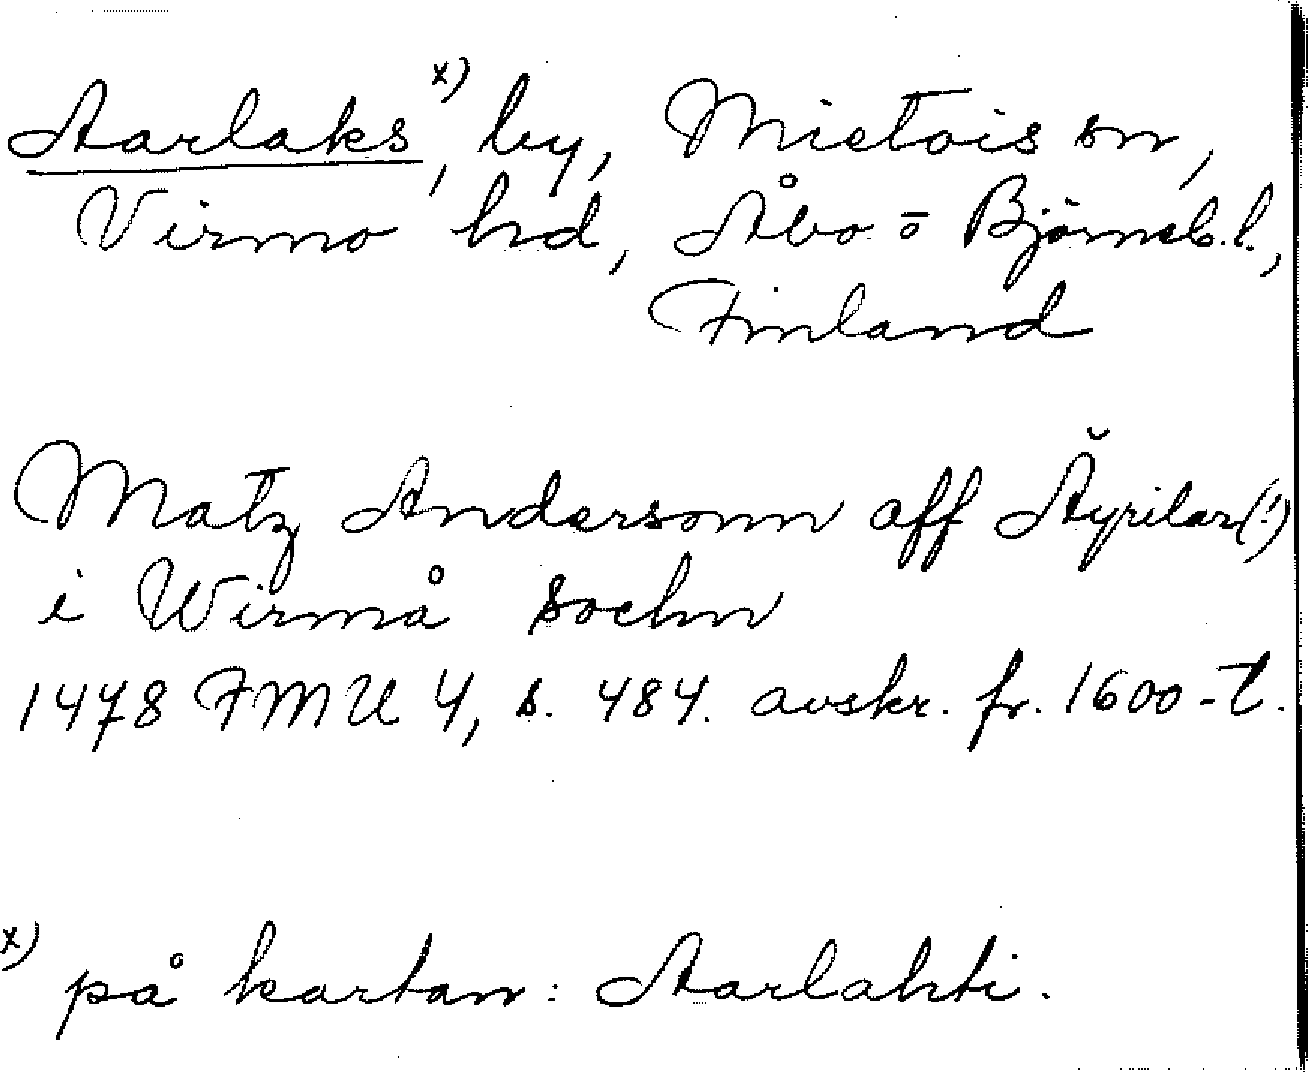 Aarlaks x), by, Mietois sn,
Virmo hd, Åbo = Björneb. l.,
Finland
Matz Andersonn aff Ăyrilax (!)
i Wirmå sochn
1478 FMU 4, s. 484. avskr. fr. 1600-t.
x) på kartan: Aarlahti.